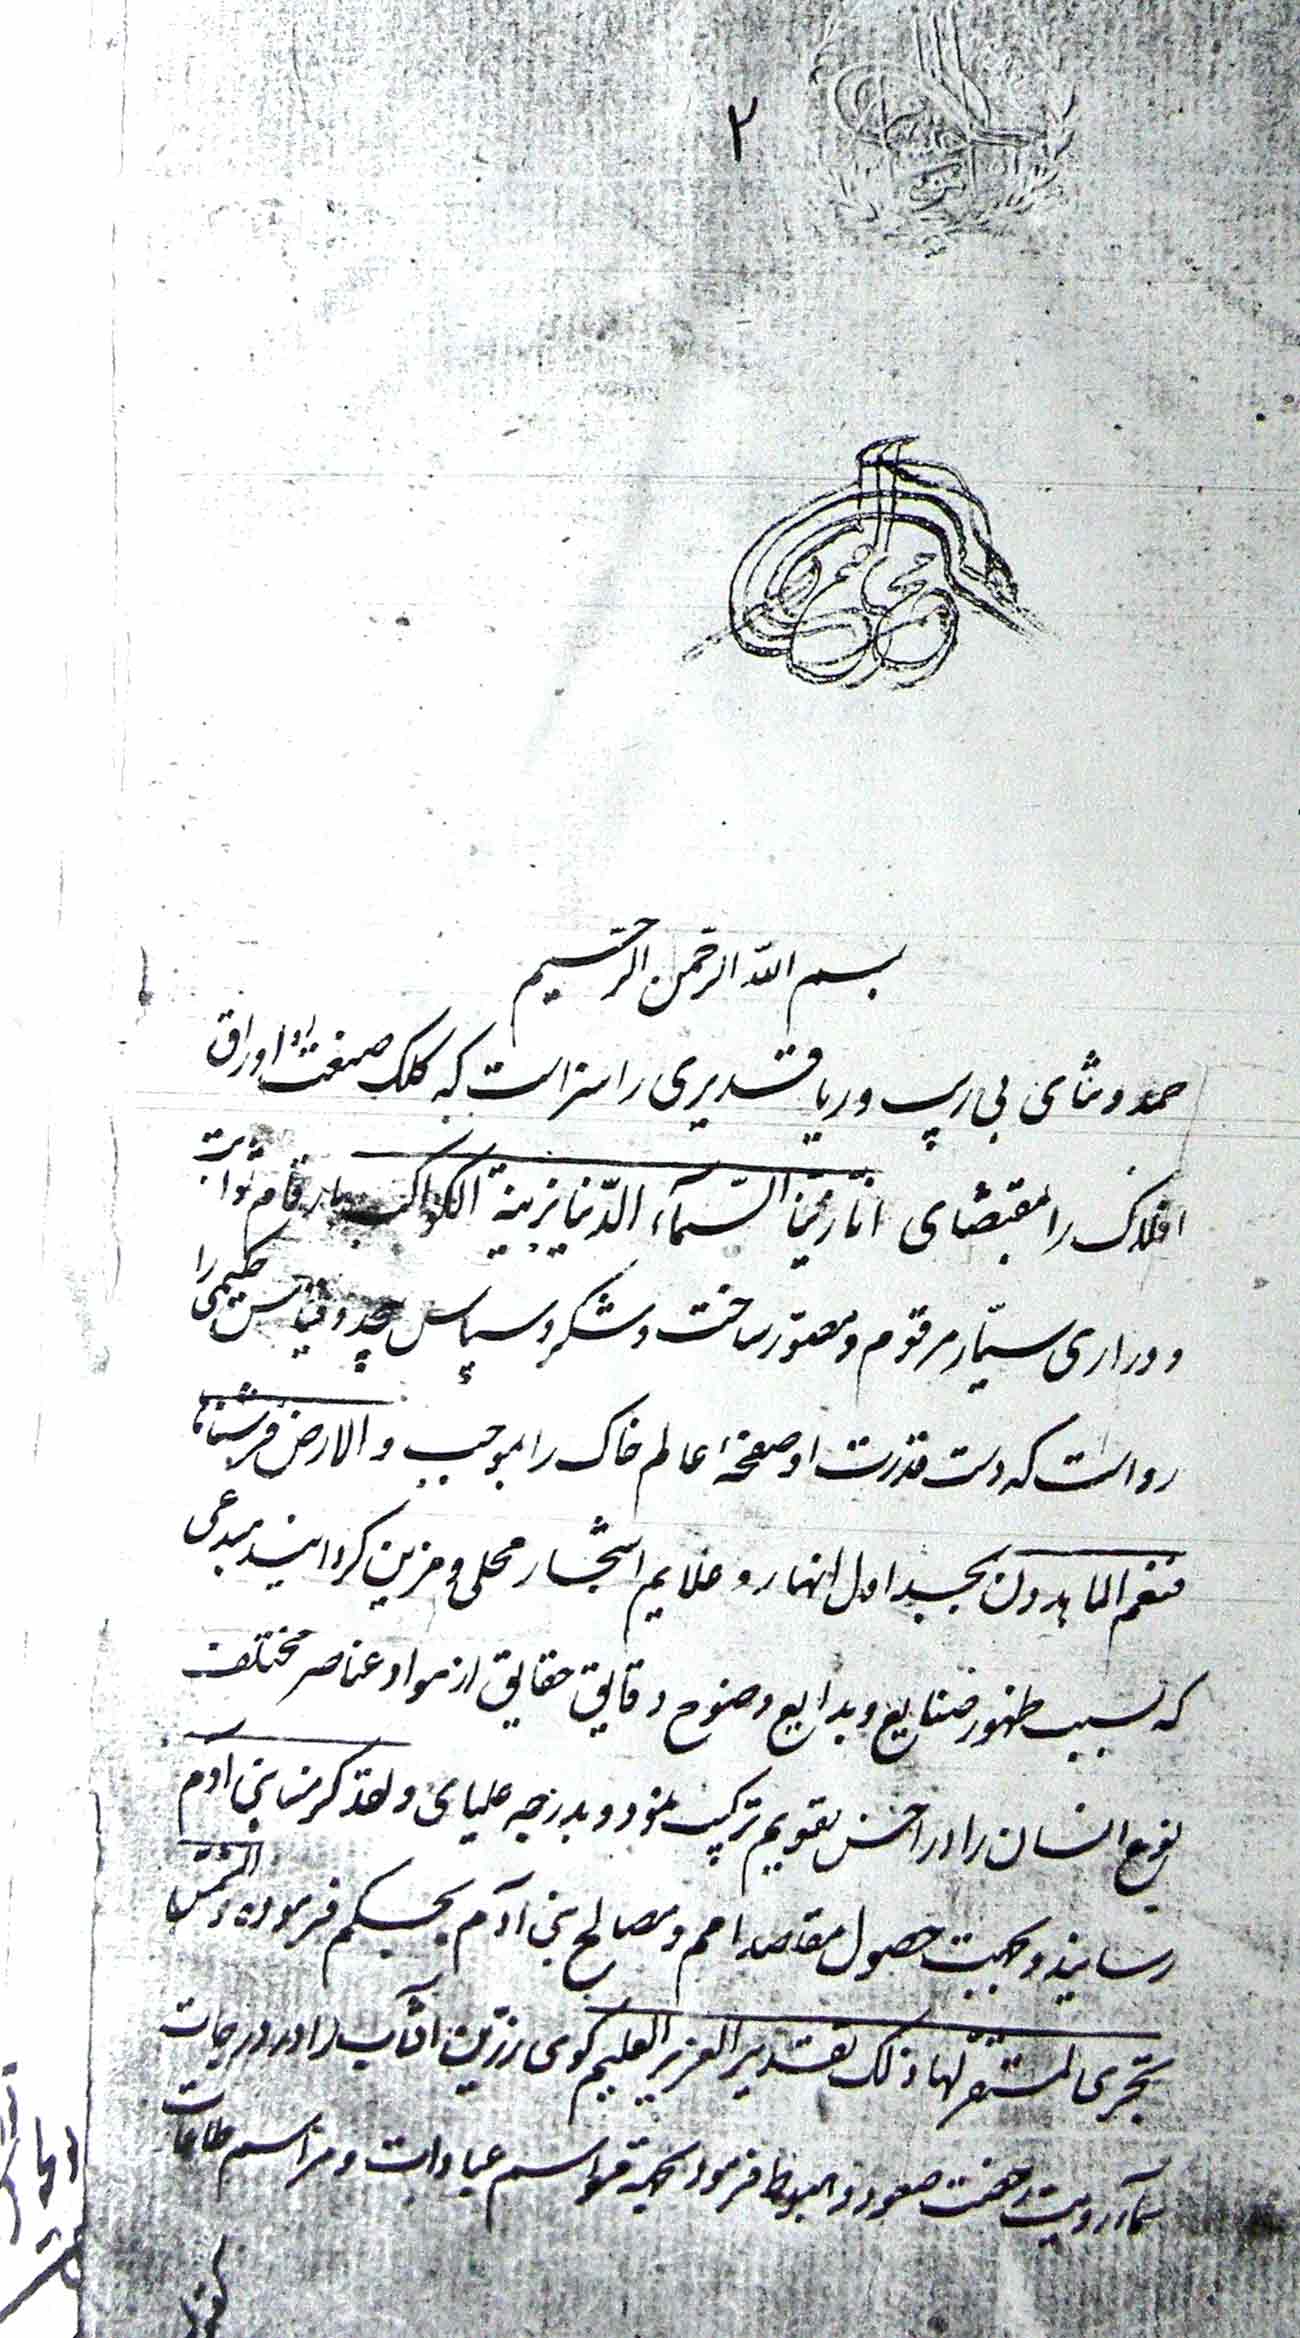 ٢
بسم الله الرحمن الرحیم
حمد و ثنای بی ریب و ریا قدیری را سزاست که کلک صنعت او اوراق
افلاک را بمقتضای انا زینا السمآء الدنیا بزینة الکواکب بارقام ثوابت
و دراری سیّار مرقوم و مصوّر ساخت و شکر و سپاس بیحد و قیاس حکیمی را
رواست که دست قدرت او صفحهٔ عالم خاک را بموجب و الارض فرشناها
فنعم الماهدون بجداول انهار و علایم اشجار محلی و مزین کردانید مبدعی
که بسبب ظهور صنایع و بدایع و وضوح دقایق حقایق از مواد عناصر مختلف
نوع انسان را در احسن تقویم ترکیب نمود و بدرجه علیای و لقد کرمنا بنی آدم
رسانید و بجهت حصول مقاصد امم و مصالح بنی آدم بحکم فرموده و الشمس
تجری لمستقر لها ذلک تقدیر العزیز العلیم کوی زرّین آفتاب را در درجات
سمآء رویت صعود و هبوط فرمود مواسم عبادات و مراسم طاعات